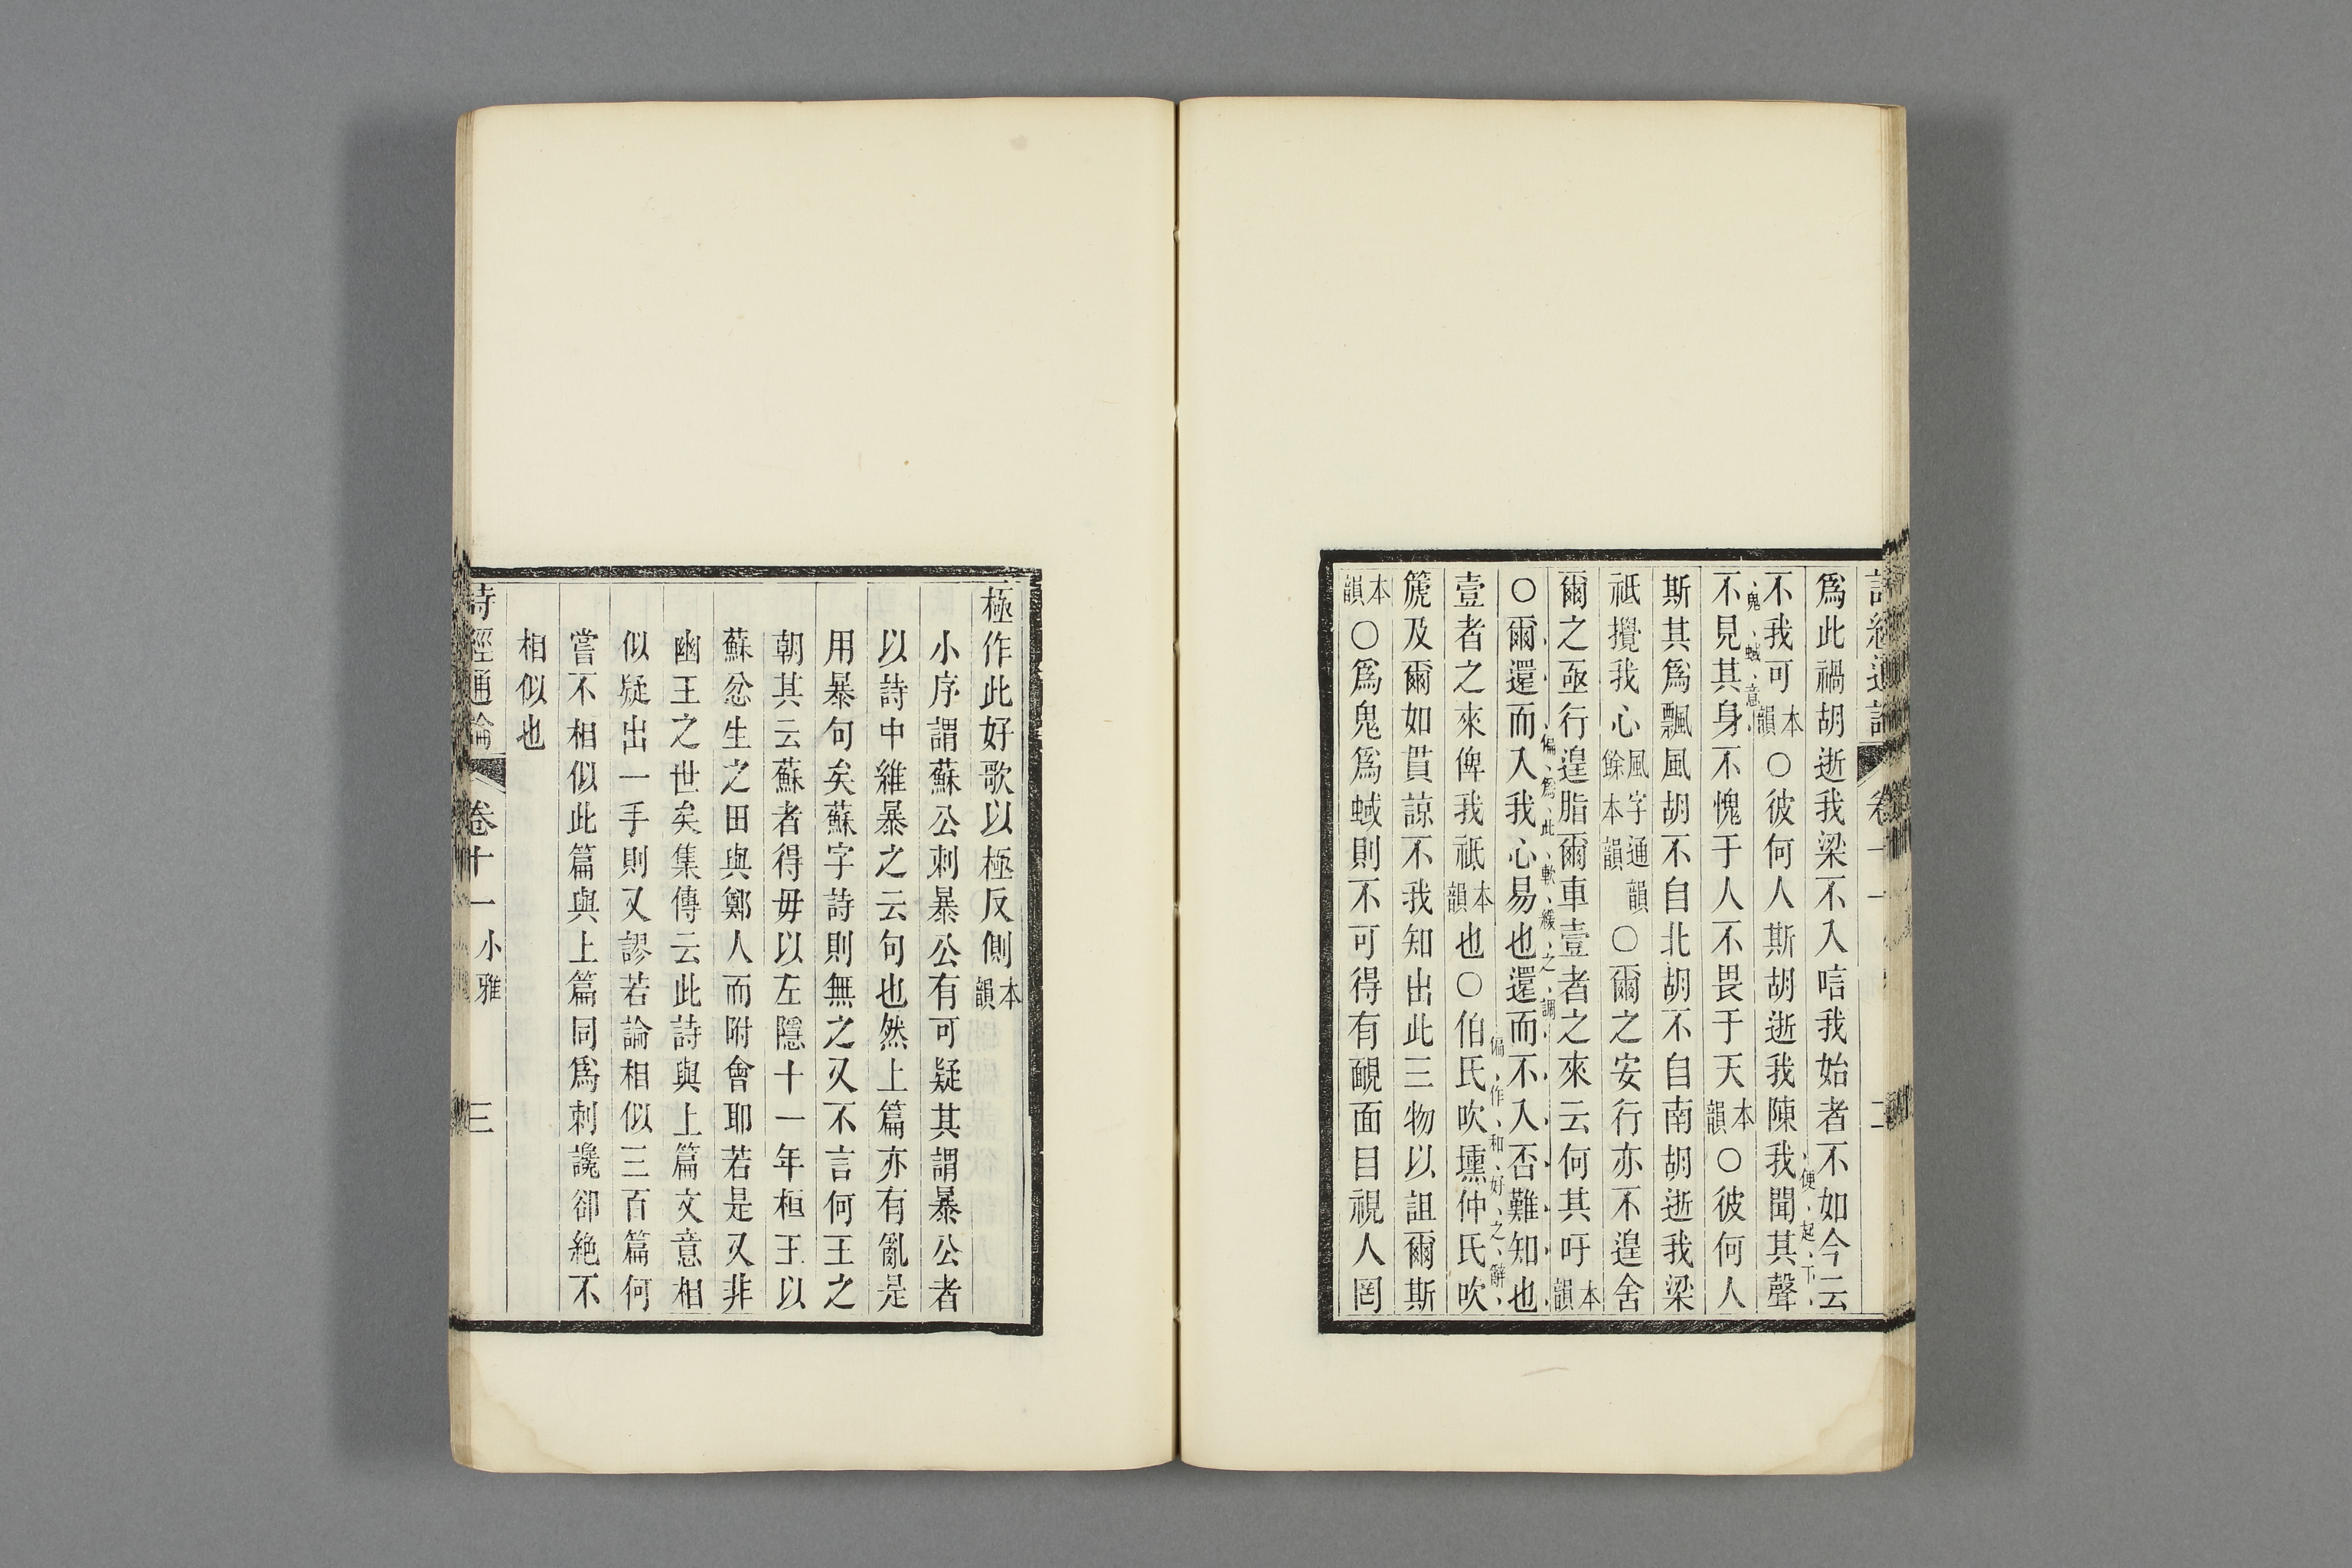 爲此禍胡逝我梁不入唁我始者不如今云
便起下
不我可本韻〇彼何人斯胡逝我陳我聞其聲
鬼蜮意
不見其身不愧于人不畏于天本韻〇彼何人
斯其爲飄風胡不自北胡不自南胡逝我梁
祗攪我心風字通韻餘本韻〇爾之安行亦不遑舍
爾之亟行遑脂爾車壹者之來云何其吁本韻
偏爲此軟緩之調
〇爾還而入我心易也還而不入否難知也
偏作和好之辭
壹者之來俾我祗本韻也〇伯氏吹壎仲氏吹
篪及爾如貫諒不我知出此三物以詛爾斯
本韻〇爲鬼爲蜮則不可得有靦面目視人罔
極作此好歌以極反側本韻
小序謂蘇公刺暴公有可疑其謂暴公者
以詩中維暴之云句也然上篇亦有亂是
用暴句矣蘇字詩則無之又不言何王之
朝其云蘇者得毋以左隱十一年桓王以
蘇忿生之田與鄭人而附會耶若是又非
幽王之世矣集傳云此詩與上篇文意相
似疑出一手則又謬若論相似三百篇何
嘗不相似此篇與上篇同爲刺讒卻絶不
相似也
詩經通論 卷十一 小雅 三